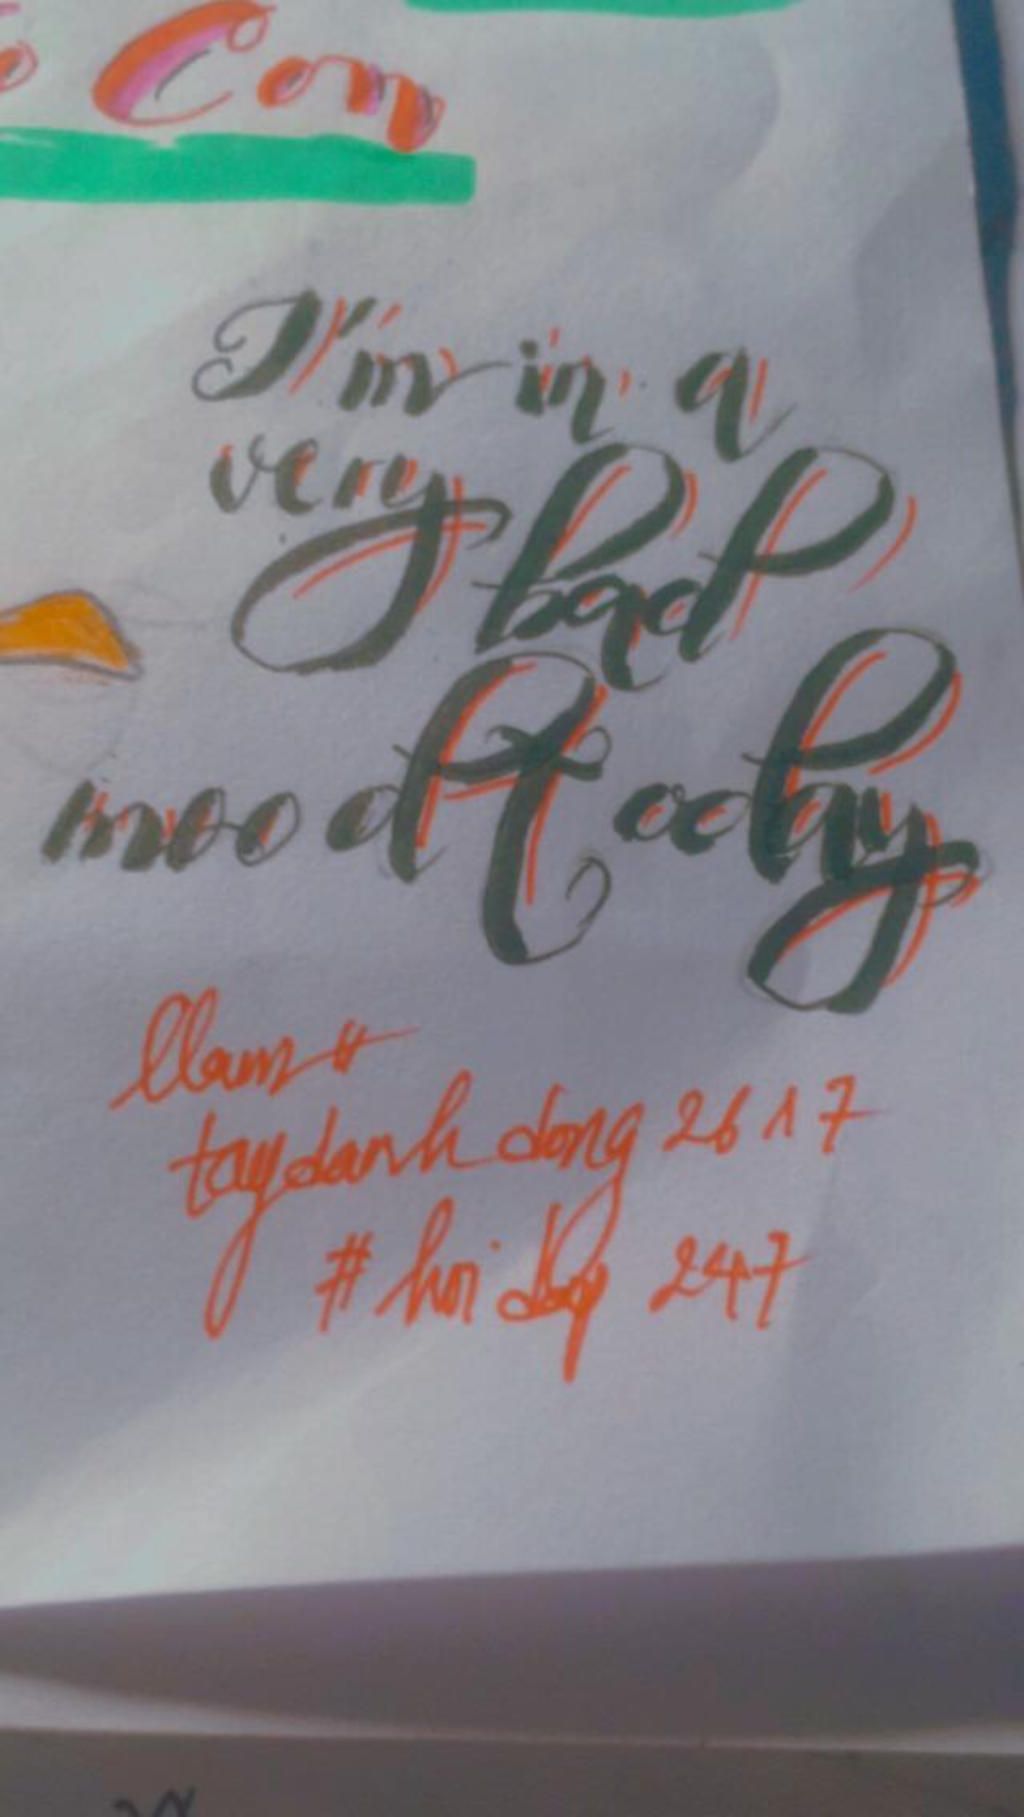 Con
I'm in a
very bad
mood today
taydanhdong 2617
# hơi 247